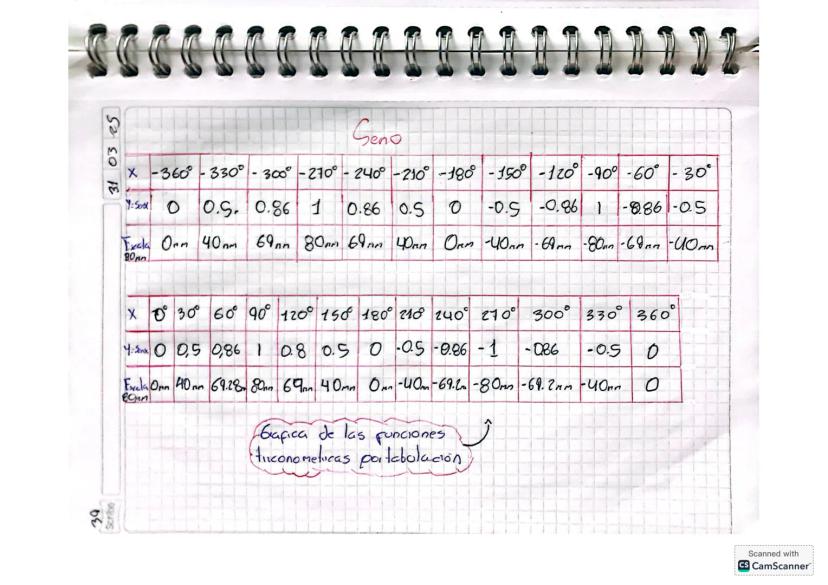 31 03 25
Seno
X -360° -330° -300° -270° -240° -210° -180° -150° -120° -90° -60° -30°
Y=Senx 0 0.5. 0.86 1 0.86 0.5 0 -0.5 -0.86 1 -0.86 -0.5
Escala 0mm 40mm 69mm 80mm 69mm 40mm 0mm -40mm -69mm -80mm -69mm -40mm
80mm
X 0° 30° 60° 90° 120° 150° 180° 210° 240° 270° 300° 330° 360°
Y=Senx 0 0,5 0,86 1 0.8 0.5 0 -0.5 -0.86 -1 -086 -0.5 0
Escala 0mm 40mm 69.28m 80mm 69mm 40mm 0mm -40m -69.2m -80mm -69.2mm -40mm 0
80mm
Grafica de las funciones
triconometricas por tabulación
39
Scribe
Scanned with
CS CamScanner